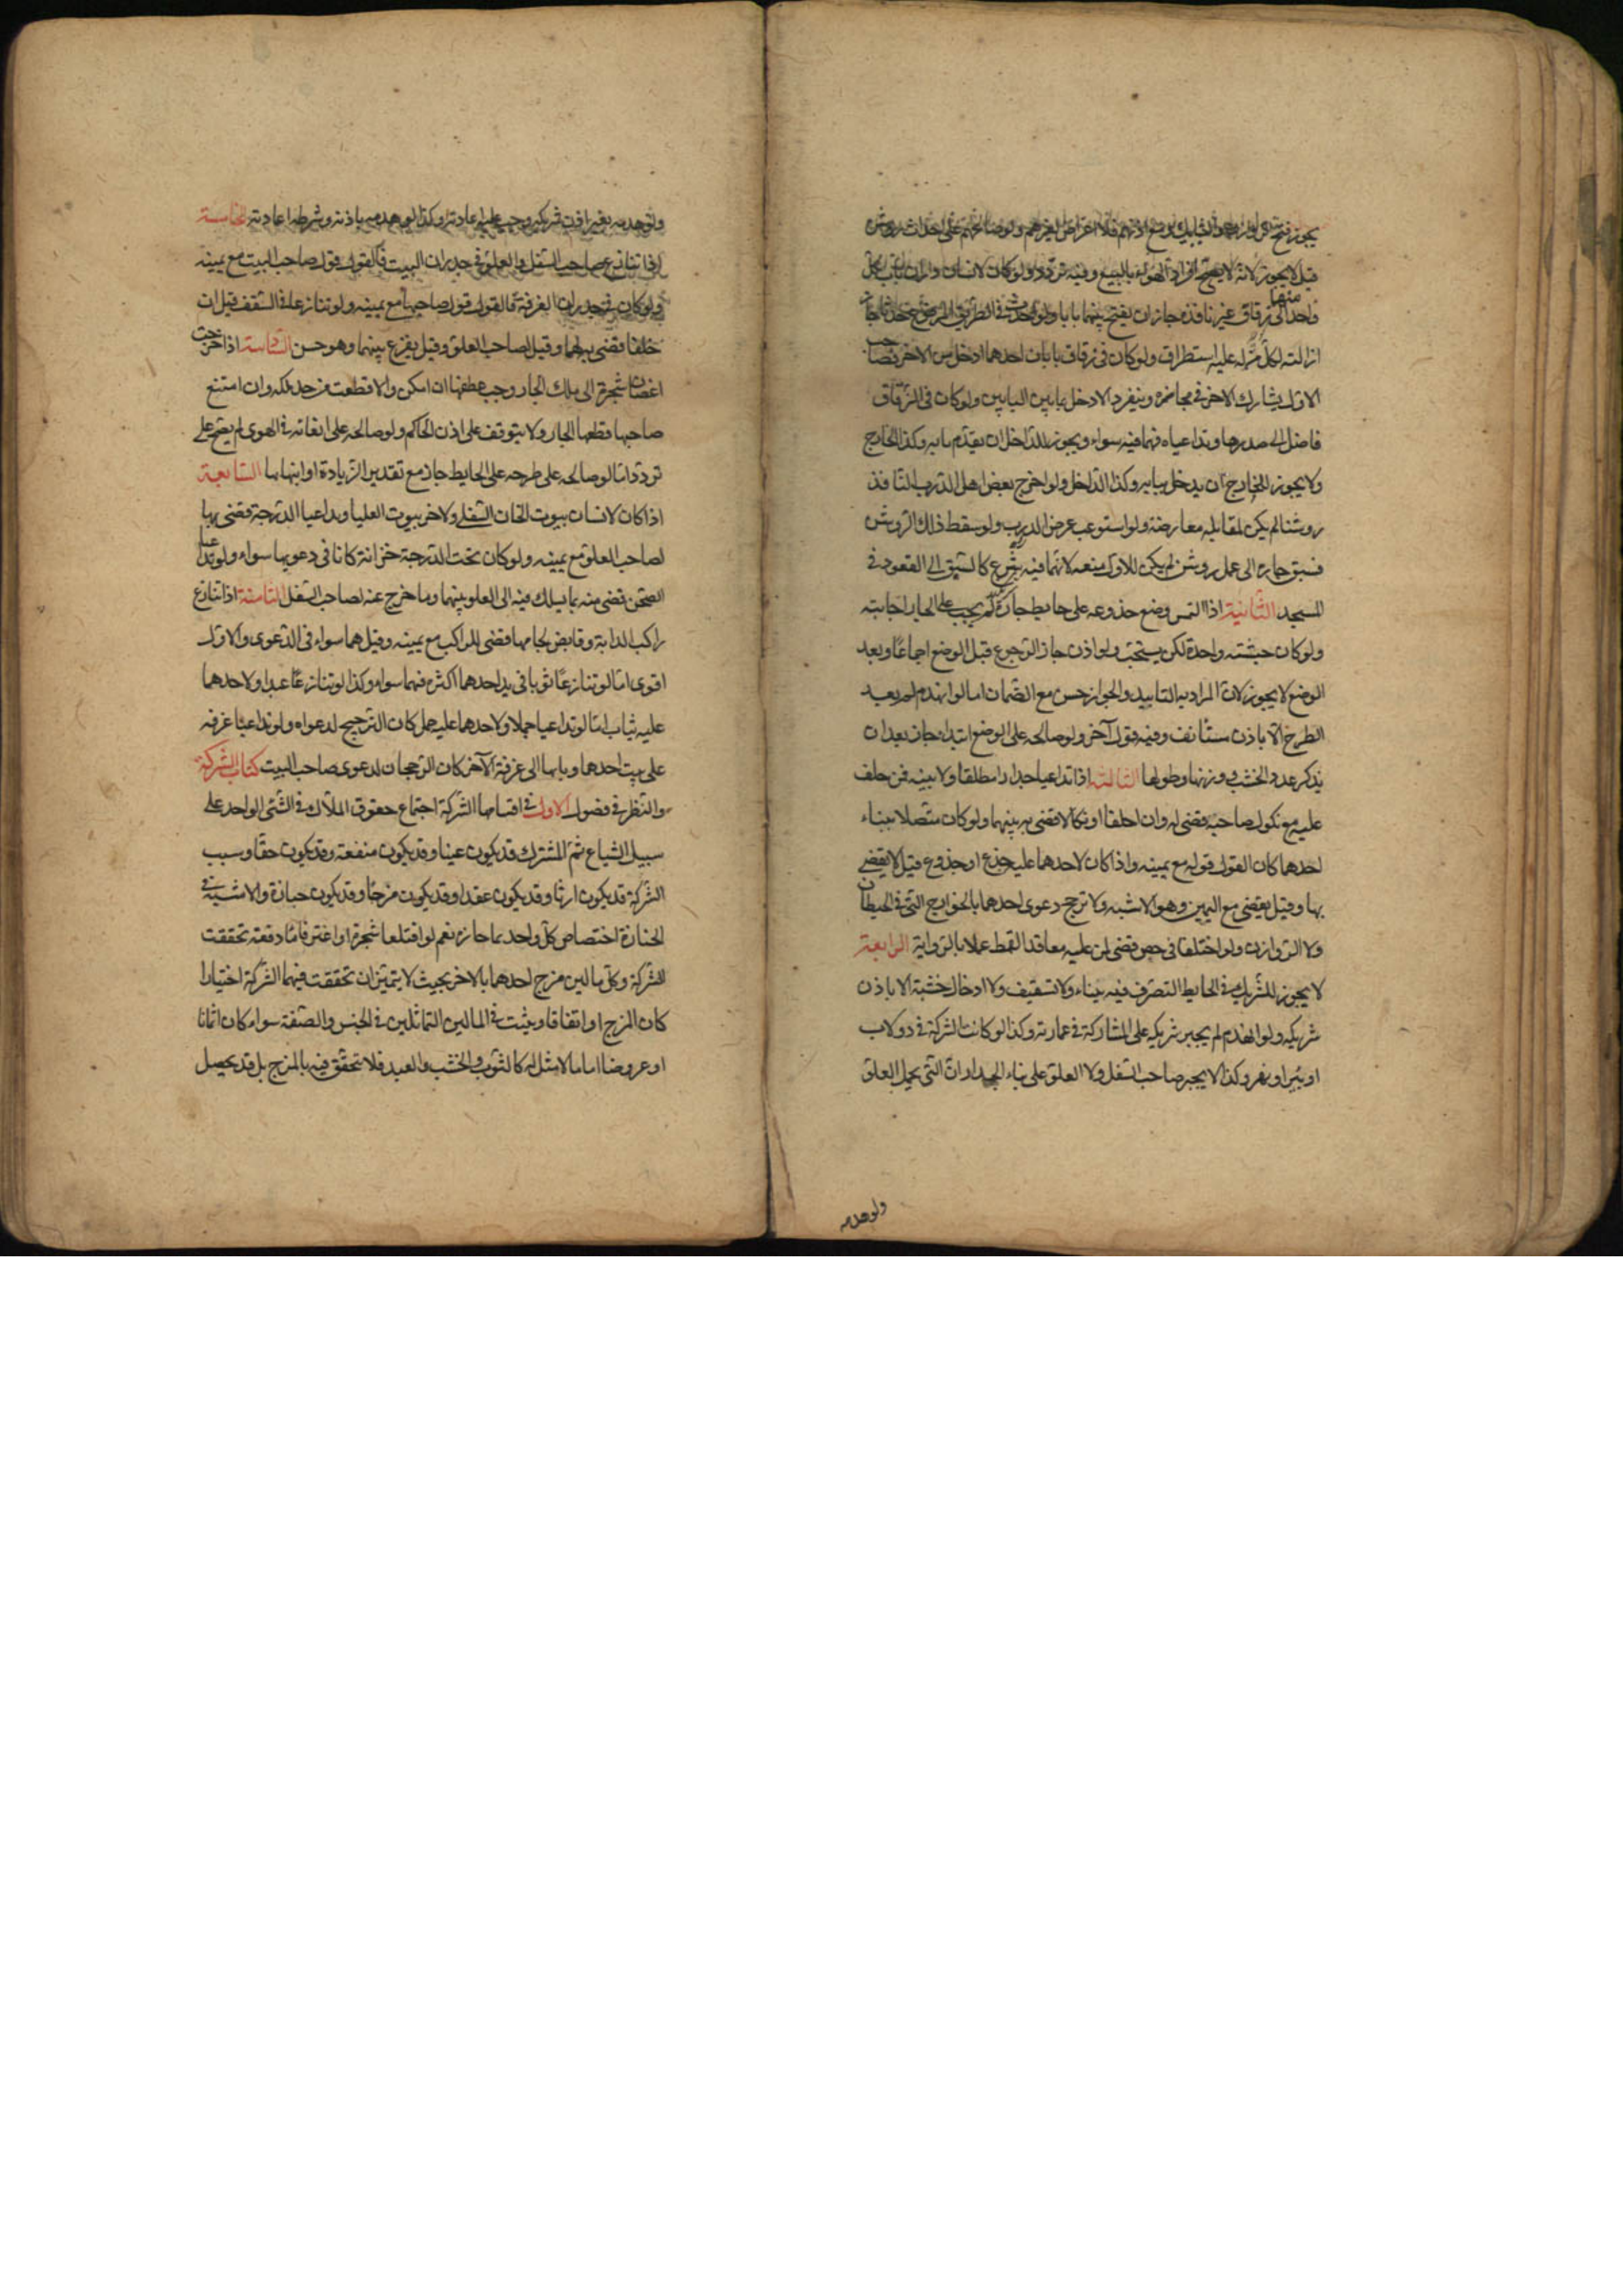 يجوز فتح الروازن والشبابيك ومع اذنهم فلا اعتراض لغيرهم ولو صالحهم على احداث روشن
قيل لا يجوز لانه لا يصح افراد الهواء بالبيع وفيه تردد ولو كان لانسان داران باب كل
واحد منهما الى زقاق غير نافذ جاز ان يفتح بينهما بابا ولو احدث في الطريق المرفوع حدثا جاز
ازالته لكل من له عليه استطراق ولو كان في زقاق بابان احدهما ادخل من الاخر فصاحب
الاول يشارك الاخر في مجازه وينفرد الادخل مابين البابين ولو كان في الزقاق
فاضل الى صدرها وتداعياه فهما فيه سواء ويجوز للداخل ان يقدم بابه وكذا الخارج
ولا يجوز للخارج ان يدخل ببابه وكذا الداخل ولو اخرج بعض اهل الدرب النافذ
روشنا لم يكن لمقابله معارضة ولو استوعب عرض الدرب ولو سقط ذلك الروشن
فسبق جاره الى عمل روشن لم يكن للاول منعه لانهما فيه شرع كالسبق الى القعود في
المسجد الثانية اذا التمس وضع جذوعه على حايط جاره لم يجب على الجار اجابته
ولو كان خشبته واحدة لكن يستحب ولو اذن جاز الرجوع قبل الوضع اجماعا وبعد
الوضع لا يجوز لان المراد به التابيد والجواز حسن مع الضمان اما لو انهدم لم يعد
الطرح الا باذن مستانف وفيه قول آخر ولو صالحه على الوضع ابتداء جاز بعد ان
يذكر عدد الخشب ووزنها وطولها الثالثة اذا تداعيا جدارا مطلقا ولا بينه فمن حلف
عليه مع نكول صاحبه قضى له وان احلفا او نكلا قضى به بينهما ولو كان متصلا ببناء
احدهما كان القول قوله مع يمينه واذا كان لاحدهما عليه جذع او جذوع قيل لا يقضى
بها وقيل يقضى مع اليمين وهو الاشبه ولا ترجح دعوى احدهما بالخوارج التي في الحيطان
ولا الروازن ولو اختلفا في خص قضى لمن عليه معاقد القمط عملا بالرواية الرابعة
لا يجوز للشريك في الحايط التصرف فيه ببناء ولا تسقيف ولا ادخال خشبة الا باذن
شريكه ولو انهدم لم يجبر شريكه على المشاركة في عمارته وكذا لو كانت الشركة في دولاب
او بئر او نهر وكذا لا يجبر صاحب السفل ولا العلو على بناء الجدار ان التي يحمل العلو
ولو هدمه
ولو هدمه بغير اذن شريكه وجب عليه اعادته وكذا لو هدمه باذنه وشرط اعادته الخامسة
اذا تنازع صاحب السفل والعلو في جدران البيت فالقول قول صاحب البيت مع يمينه
ولو كان في جدران الغرفة فالقول قول صاحبها مع يمينه ولو تنازعا في السقف قيل ان
حلفا قضى به لهما وقيل لصاحب العلو وقيل يقرع بينهما وهو حسن السادسة اذا خرجت
اغصان شجرة الى ملك الجار وجب عطفها ان امكن والا قطعت من حد ملكه وان امتنع
صاحبها قطعها الجار ولا يتوقف على اذن الحاكم ولو صالحه على ابقائه في الهوى لم يصح على
تردد اما لو صالحه على طرحه على الحايط جاز مع تقدير الزيادة او انتهائها السابعة
اذا كان لانسان بيوت الخان السفلى ولاخر بيوت العليا وتداعيا الدرجة قضى بها
لصاحب العلو مع يمينه ولو كان تحت الدرجة خزانة كانا في دعويها سواء ولو تداعيا
الصحن قضى منه بما يسلك فيه الى العلو بينهما وما خرج عنه لصاحب السفل الثامنة اذا تنازع
راكب الدابة وقابض لجامها قضى للراكب مع يمينه وقيل هما سواء في الدعوى والاول
اقوى اما لو تنازعا ثوبا في يد احدهما اكثره فهما سواء وكذا لو تنازعا عبدا ولاحدهما
عليه ثياب اما لو تداعيا جملا ولاحدهما عليه حمل كان الترجيح لدعواه ولو تداعيا غرفه
على بيت احدهما وبابها الى غرفة الآخر كان الرجحان لدعوى صاحب البيت كتاب الشركة
والنظر في فصول الاول في اقسامها الشركة اجتماع حقوق الملاك في الشئ الواحد على
سبيل الشياع ثم المشترك قد يكون عينا وقد يكون منفعة وقد يكون حقا وسبب
الشركة قد يكون ارثا وقد يكون عقدا وقد يكون مزجا وقد يكون حيازة والاشبه في
الحيازة اختصاص كل واحد بما حازه نعم لو اقتلعا شجرة او اغترفا ماء دفعة تحققت
الشركة وكل مالين مزج احدهما بالاخر بحيث لا يتميزان تحققت فيهما الشركة اختيارا
كان المزج او اتفاقا ويثبت في المالين المتماثلين في الجنس والصفة سواء كان اثمانا
او عروضا اما ما لا مثل له كالثوب والخشب والعبد فلا تتحقق فيه بالمزج بل قد يحصل